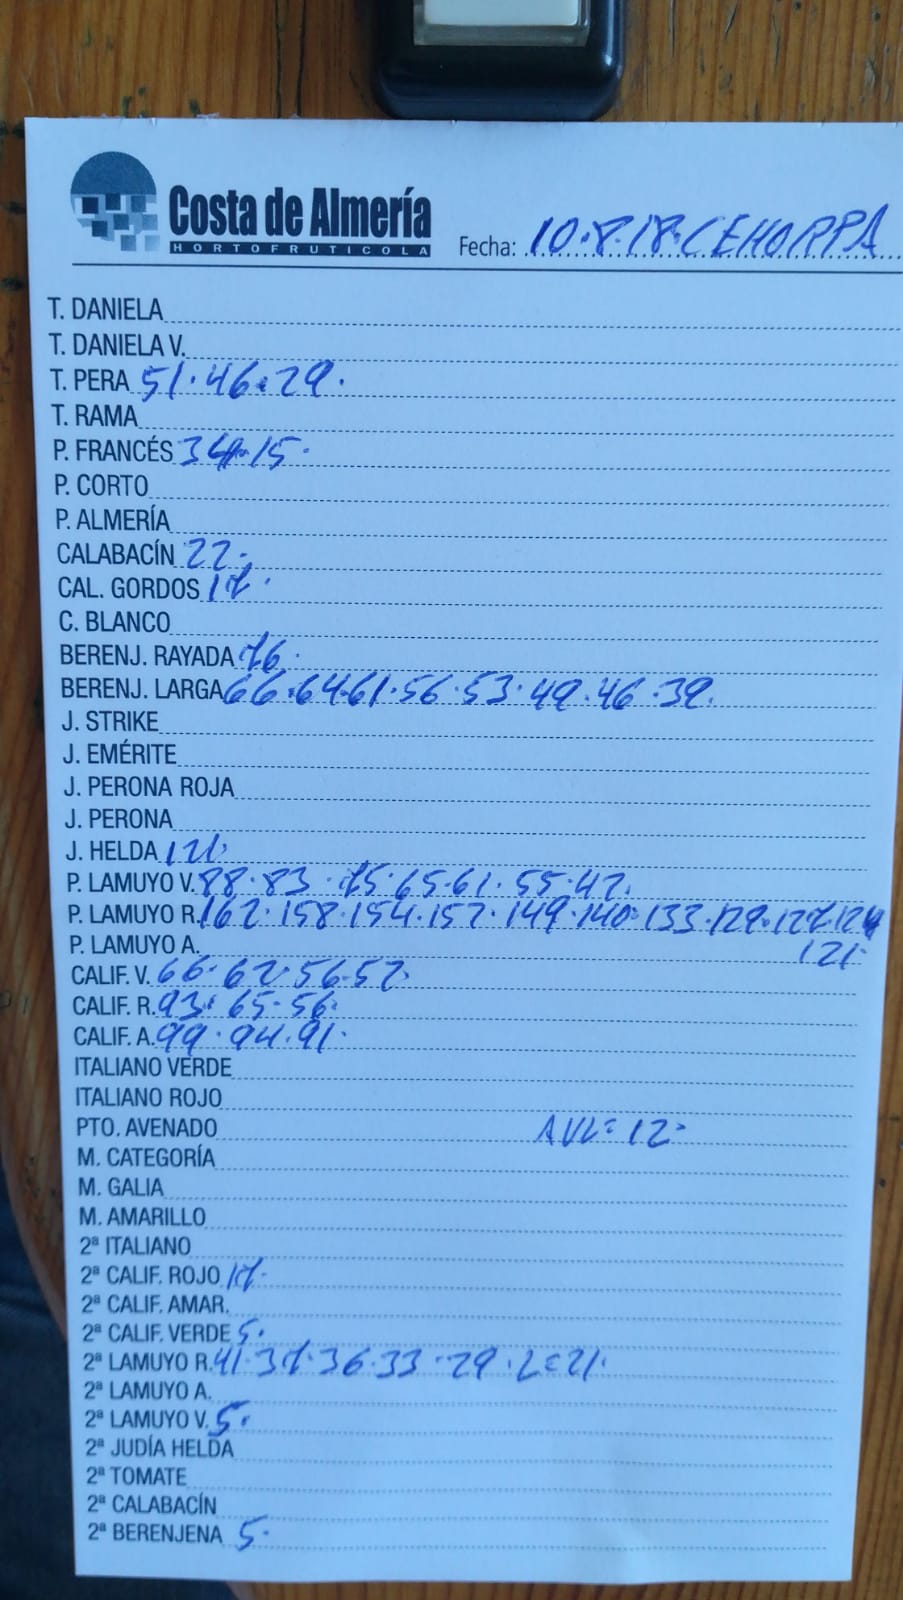 Costa de Almería
HORTOFRUTICOLA
Fecha: 10.8.18. CEHORPA
T. DANIELA
T. DANIELA V.
T. PERA 51.46.29.
T. RAMA
P. FRANCÉS 34.15.
P. CORTO
P. ALMERÍA
CALABACÍN 22.
CAL. GORDOS 17.
C. BLANCO
BERENJ. RAYADA 76.
BERENJ. LARGA 66.64.61.56.53.49.46.39.
J. STRIKE
J. EMÉRITE
J. PERONA ROJA
J. PERONA
J. HELDA 121.
P. LAMUYO V. 88.83.75.65.61.55.47.
P. LAMUYO R. 162.158.154.152.149.140.133.129.127.124
121.
P. LAMUYO A.
CALIF. V. 66.62.56.52.
CALIF. R. 93.65.56.
CALIF. A. 99.94.91.
ITALIANO VERDE
ITALIANO ROJO
PTO. AVENADO AVL= 12.
M. CATEGORÍA
M. GALIA
M. AMARILLO
2ª ITALIANO
2ª CALIF. ROJO 17.
2ª CALIF. AMAR.
2ª CALIF. VERDE 5.
2ª LAMUYO R. 41.37.36.33.29.L=21.
2ª LAMUYO A.
2ª LAMUYO V. 5.
2ª JUDÍA HELDA
2ª TOMATE
2ª CALABACÍN
2ª BERENJENA 5.